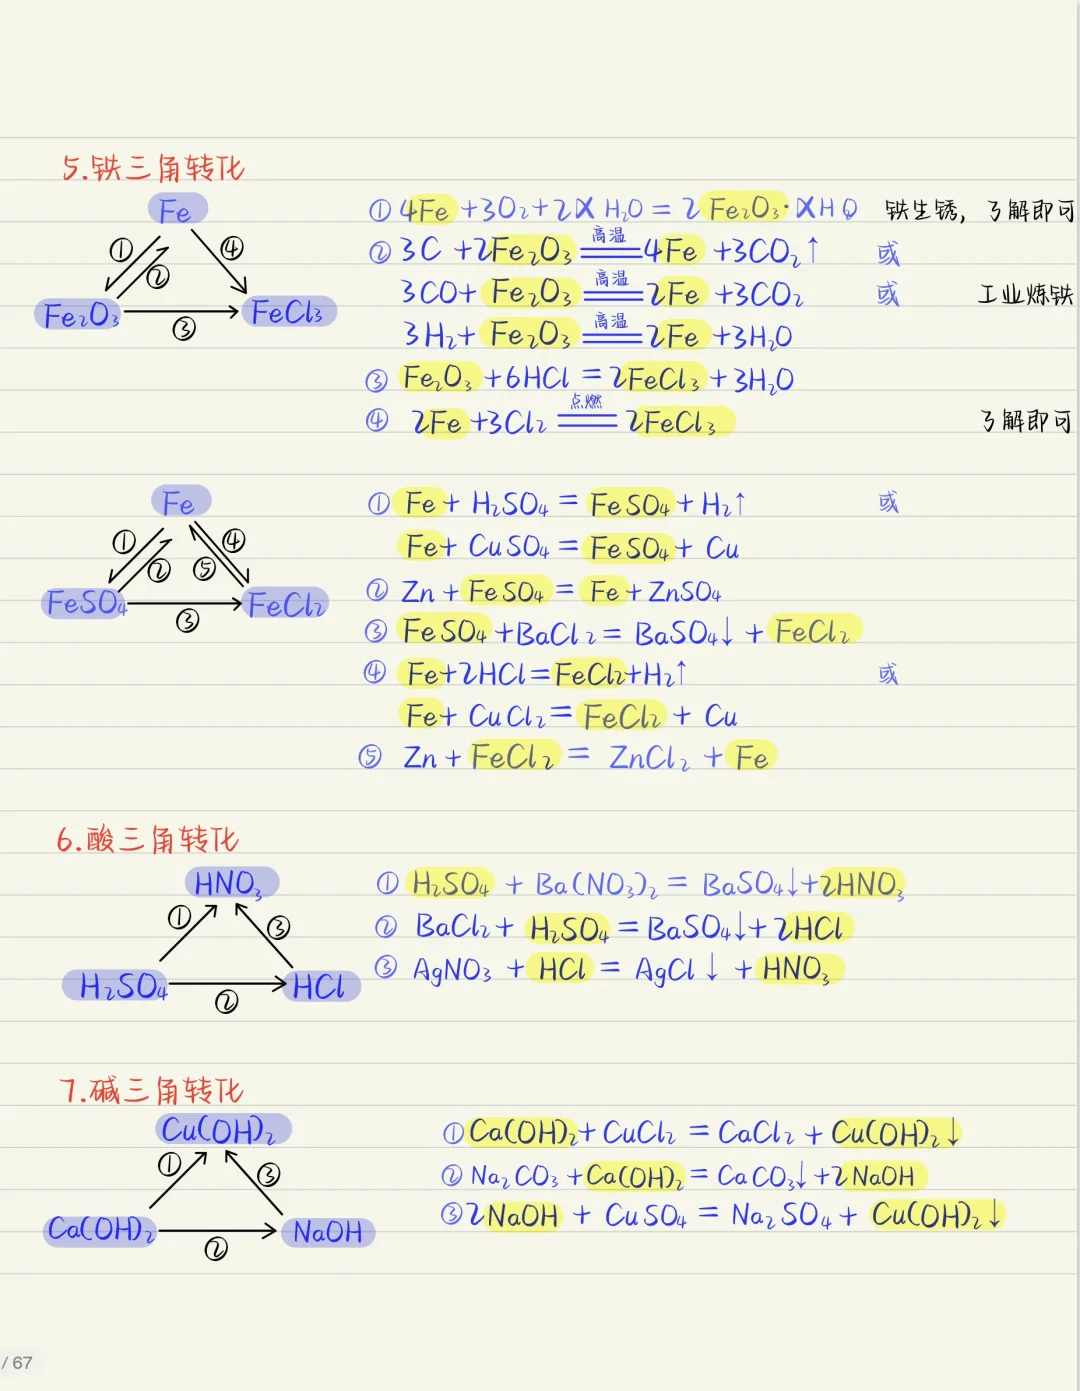 5.铁三角转化
Fe
① ② ④
Fe₂O₃ ③ FeCl₃
① 4Fe+3O₂+2XH₂O=2Fe₂O₃·XH₂O 铁生锈,了解即可
② 3C+2Fe₂O₃ 高温 4Fe+3CO₂↑ 或
3CO+Fe₂O₃ 高温 2Fe+3CO₂ 或 工业炼铁
3H₂+Fe₂O₃ 高温 2Fe+3H₂O
③ Fe₂O₃+6HCl=2FeCl₃+3H₂O
④ 2Fe+3Cl₂ 点燃 2FeCl₃ 了解即可
Fe
① ② ⑤ ④
FeSO₄ ③ FeCl₂
① Fe+H₂SO₄=FeSO₄+H₂↑ 或
Fe+CuSO₄=FeSO₄+Cu
② Zn+FeSO₄=Fe+ZnSO₄
③ FeSO₄+BaCl₂=BaSO₄↓+FeCl₂
④ Fe+2HCl=FeCl₂+H₂↑ 或
Fe+CuCl₂=FeCl₂+Cu
⑤ Zn+FeCl₂=ZnCl₂+Fe
6.酸三角转化
HNO₃
① ③
H₂SO₄ ② HCl
① H₂SO₄+Ba(NO₃)₂=BaSO₄↓+2HNO₃
② BaCl₂+H₂SO₄=BaSO₄↓+2HCl
③ AgNO₃+HCl=AgCl↓+HNO₃
7.碱三角转化
Cu(OH)₂
① ③
Ca(OH)₂ ② NaOH
① Ca(OH)₂+CuCl₂=CaCl₂+Cu(OH)₂↓
② Na₂CO₃+Ca(OH)₂=CaCO₃↓+2NaOH
③ 2NaOH+CuSO₄=Na₂SO₄+Cu(OH)₂↓
/ 67